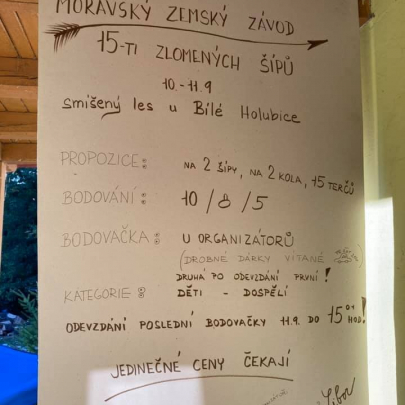 MORAVSKÝ ZEMSKÝ ZÁVOD
15-TI ZLOMENÝCH ŠÍPŮ
10.-11.9
smíšený les u Bílé Holubice
PROPOZICE: NA 2 ŠÍPY, NA 2 KOLA, 15 TERČŮ
BODOVÁNÍ: 10/8/5
BODOVAČKA: U ORGANIZÁTORŮ
(DROBNÉ DÁRKY VÍTANÉ)
DRUHÁ PO ODEVZDÁNÍ PRVNÍ!
KATEGORIE: DĚTI - DOSPĚLÍ
ODEVZDÁNÍ POSLEDNÍ BODOVAČKY 11.9. DO 15 HOD!
JEDINEČNÉ CENY ČEKAJÍ
Libor